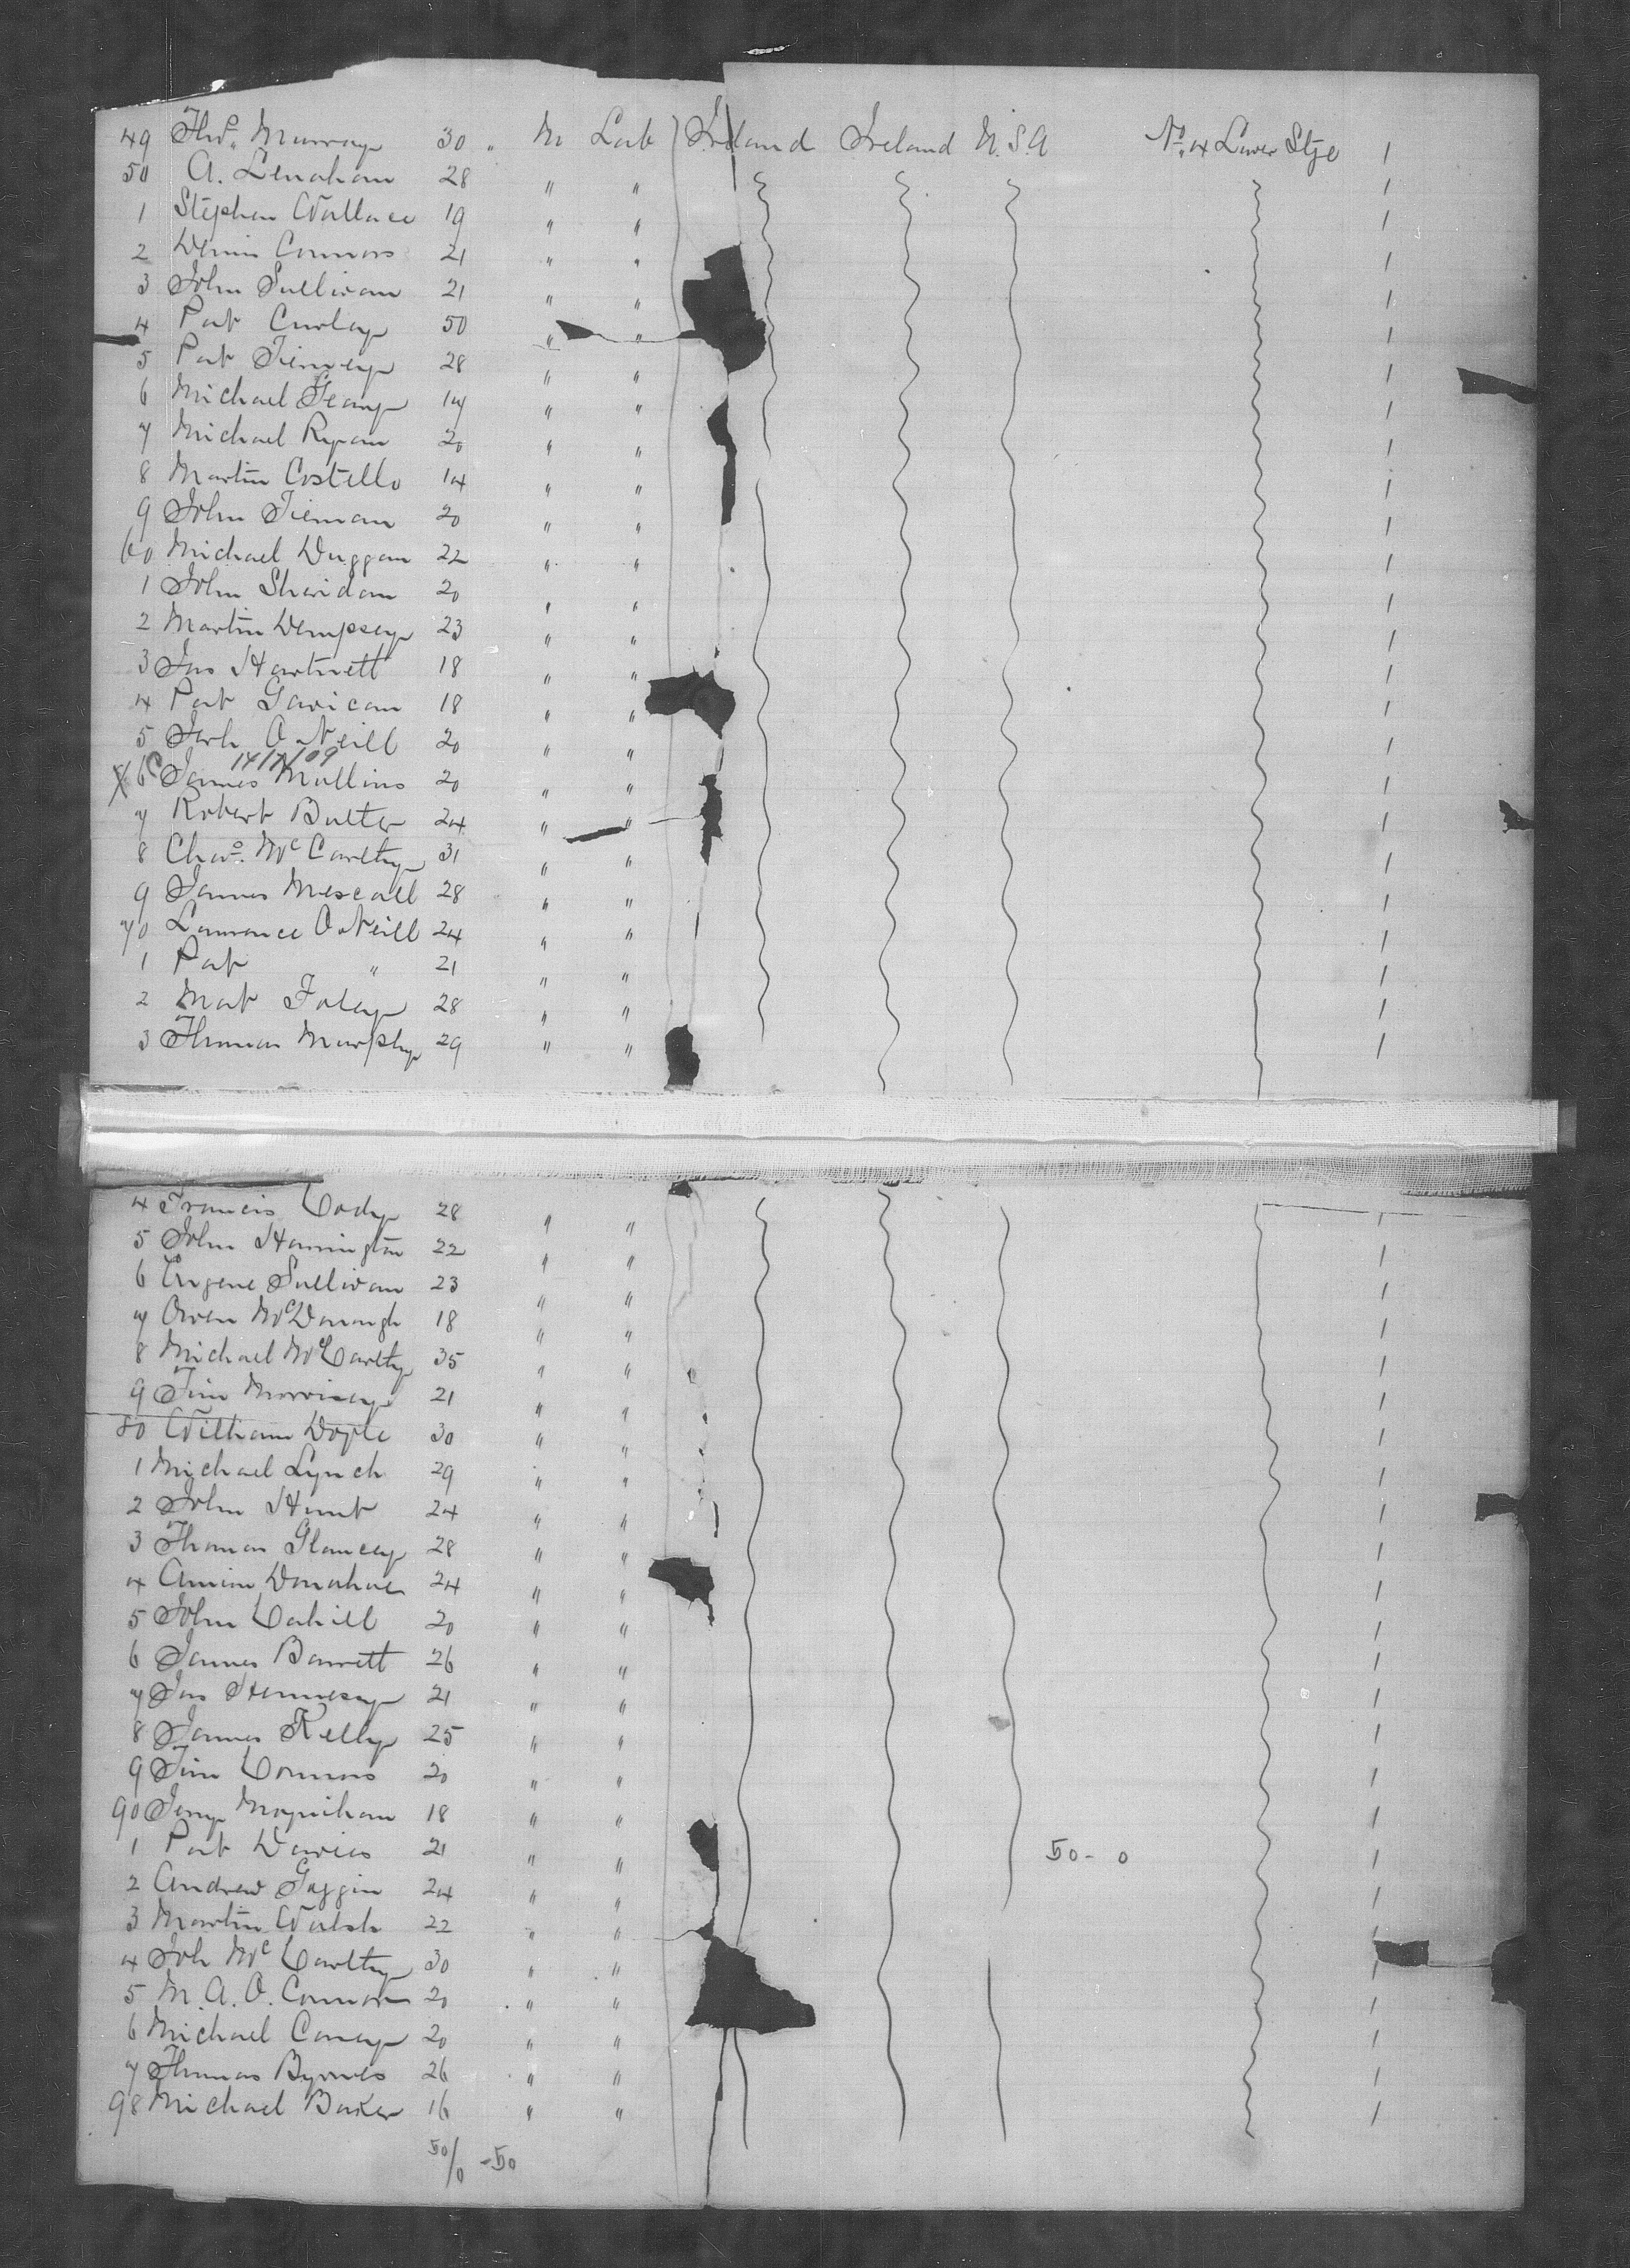 49 Thos. Murray 30 " M Lab Ireland Ireland U.S.A No. 4 Lower Stge /
50 A. Lenahan 28 " " /
1 Stephen Wallace 19 " " /
2 Denis Connors 21 " " /
3 John Sullivan 21 " " /
4 Pat Curley 50 " " /
5 Pat Tierney 28 " " /
6 Michael " " /
7 Michael Ryan 20 " " /
8 Martin Costello 14 " " /
9 John Tiernan 20 " " /
60 Michael Duggan 22 " " /
1 John Sheridan 20 " " /
2 Martin Dempsey 23 " " /
3 Jas Hartnett 18 " " /
4 Pat Gavican 18 " " /
5 O'Neill 20 " " /
14/7/09
X 6 James Mullins 20 " " /
7 Robert Butler 24 " " /
8 Chas. McCarthy 31 " " /
9 James Mescall 28 " " /
70 Lawrence O'Neill 24 " " /
1 Pat " 21 " " /
2 Mat Foley 28 " " /
3 Thomas Murphy 29 " " /
4 Francis Cody 28 " " /
5 John Hannington 22 " " /
6 Eugene Sullivan 23 " " /
7 Owen McDonough 18 " " /
8 Michael McCarthy 35 " " /
9 Tim Morrisey 21 " " /
80 William Doyle 30 " " /
1 Michael Lynch 29 " " /
2 John Hunt 24 " " /
3 Thomas Glancey 28 " " /
4 Donahoe 24 " " /
5 John Cahill 20 " " /
6 James Barrett 26 " " /
7 Jas Hennesey 21 " " /
8 James Kelly 25 " " /
9 Tim Connors 20 " " /
90 Jerry Moynihan 18 " " /
1 Pat Davies 21 " " 50 - 0 /
2 Andrew Goggin 24 " " /
3 Martin Walsh 22 " " /
4 Joh McCarthy 30 " " /
5 M. A. O. Connor 20 " " /
6 Michael 20 " " /
7 Thomas Byrnes 26 " " /
98 Michael Baker 16 " " /
50/0 - 50